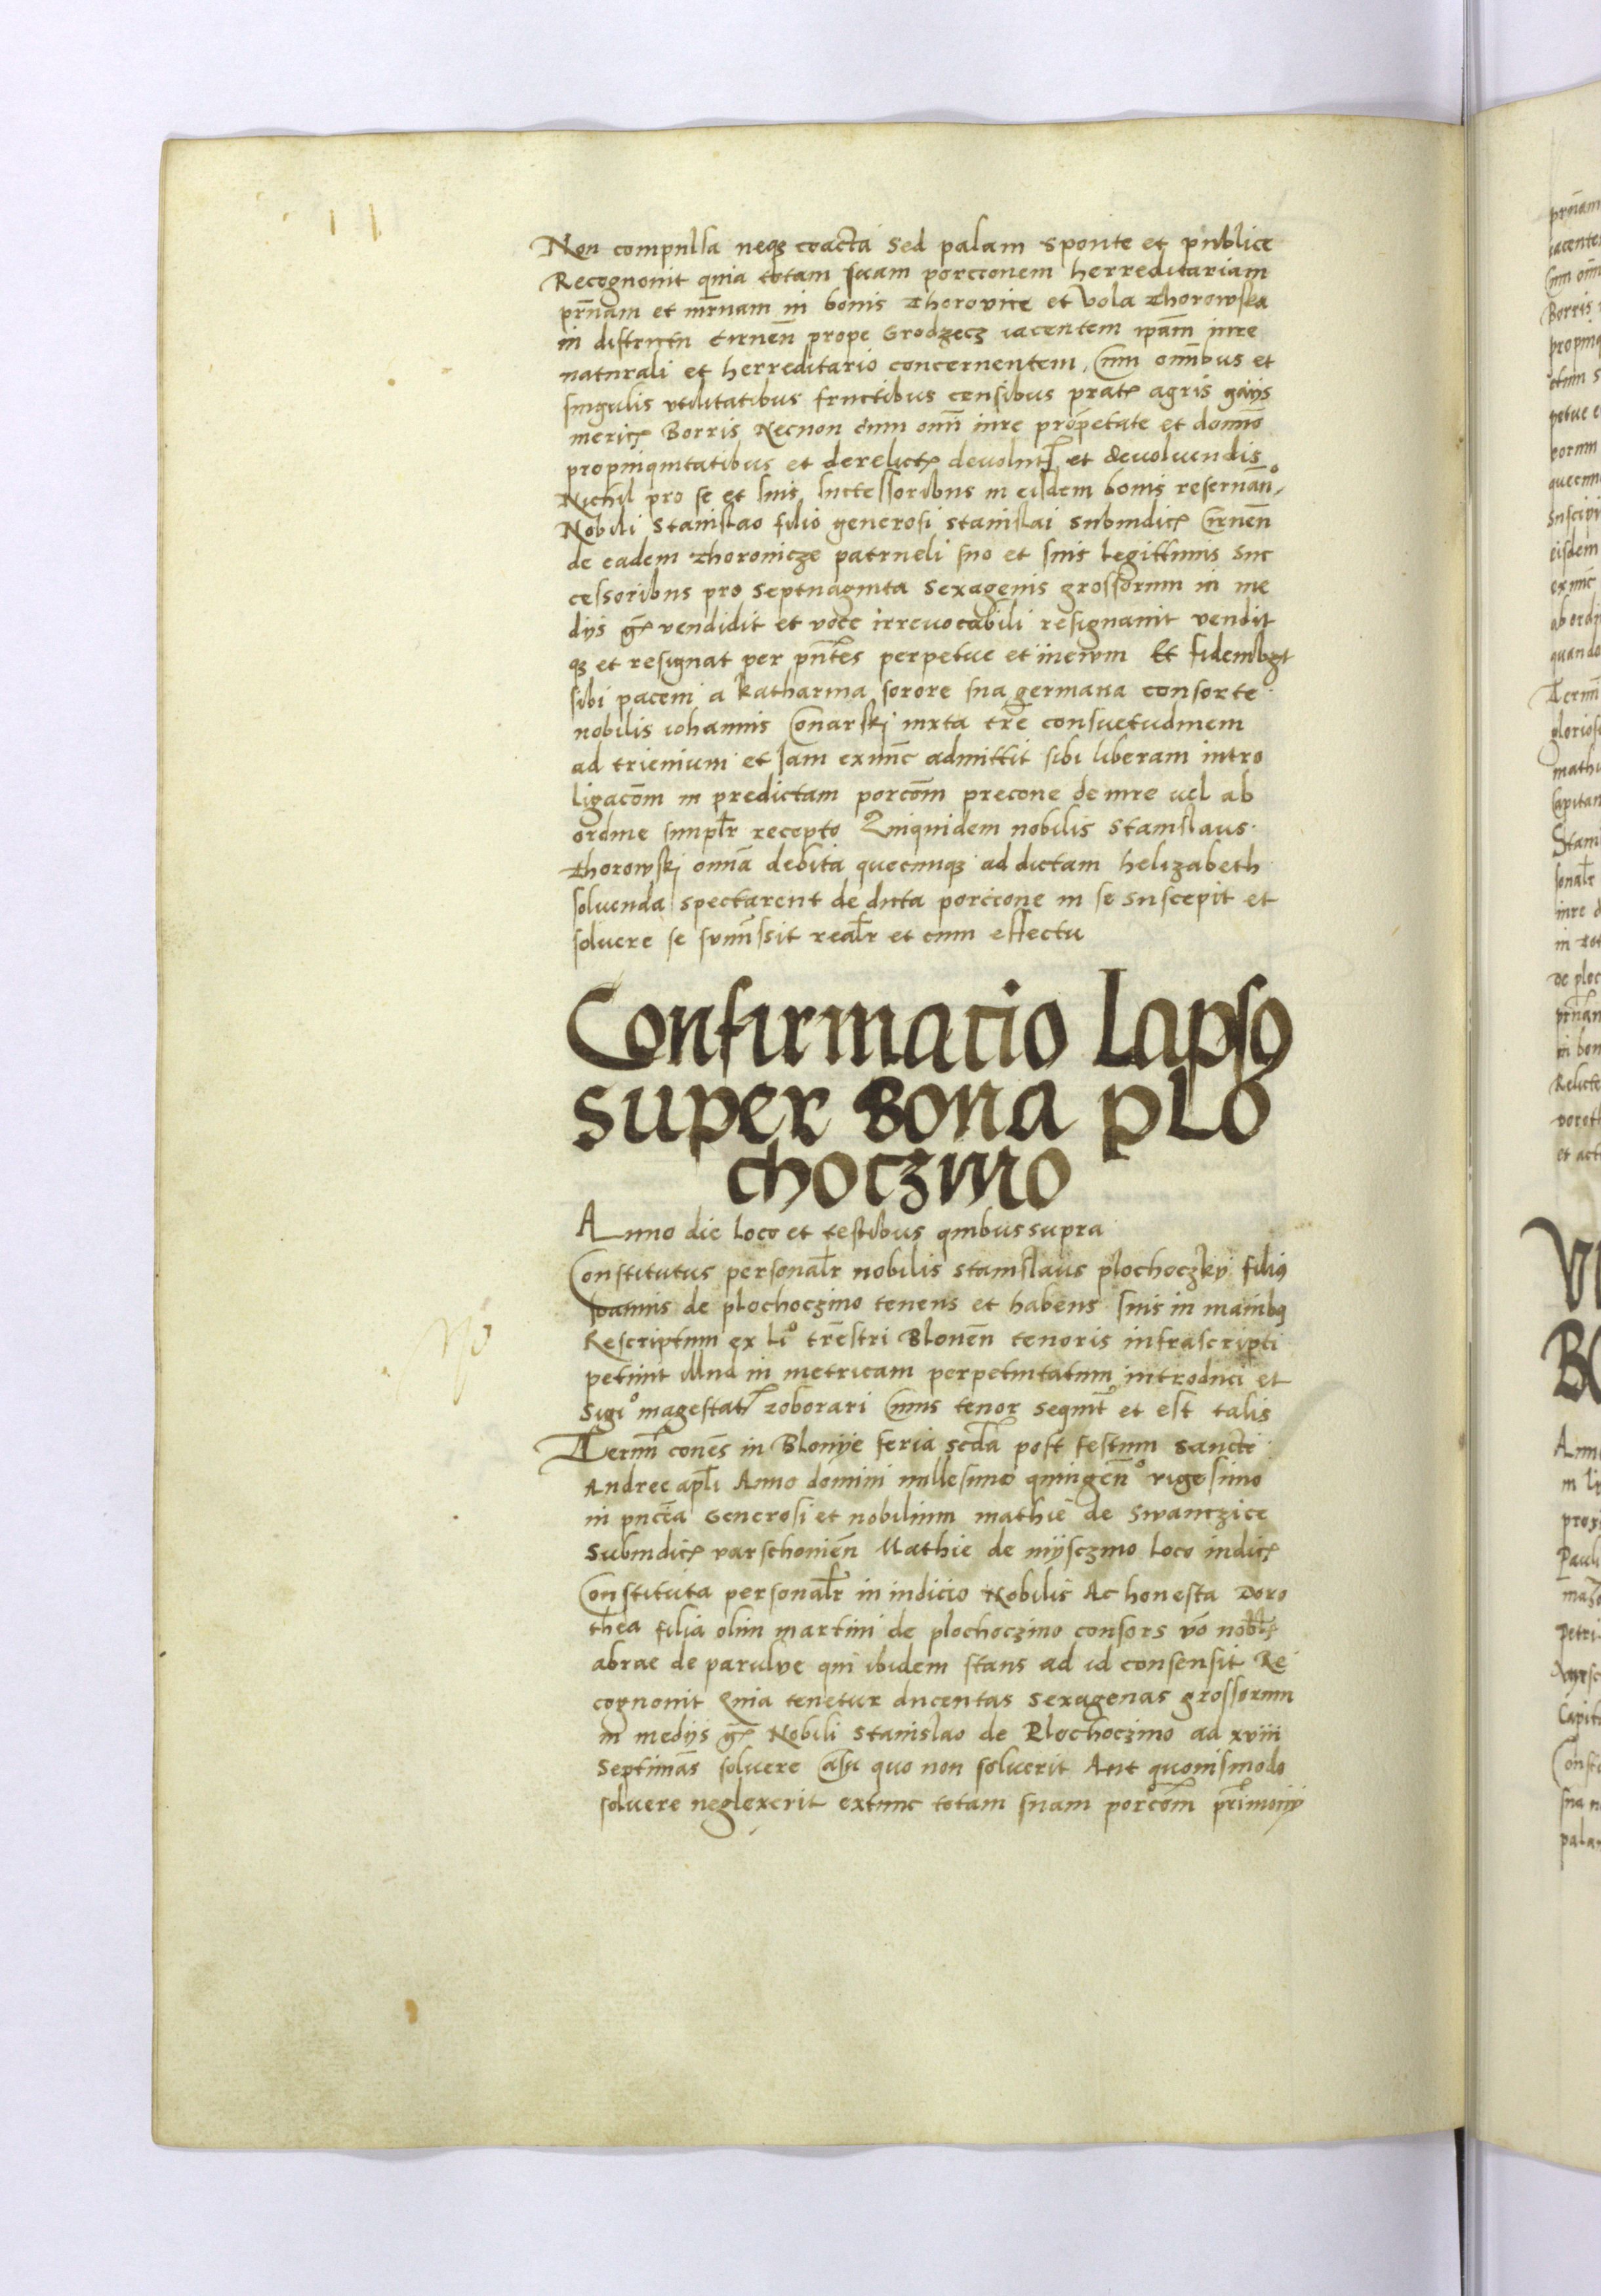 Non compulsa neqꝫ coacta sed palam sponte et publice
Recognovit quia totam suam porcionem herreditariam
pr̄nam et mr̄nam in bonis Thorovice et Vola Thorowska
in districtu Cirnen̄ prope Grodzecz iacentem ip̄am iure
naturali et herreditario concernentem, Cum om̄ibus et
singulis vtilitatibus fructibus censibus prat agris gaijs
meric Borris Necnon cum om̄i iure proprietate et domīo
propinquitatibus et derelict devolut et devoluendis
Nichil pro se et suis successoribus in eisdem bonis reservan̄º
Nobili Stanislao filio generosi Stanislai Subiudic Cirnen̄
de eadem Thorouicze patrueli suo et suis legittimis suc
cessoribus pro septuaginta sexagenis grossorum in me
dijs gͬ vendidit et voce irrevocabili resignauit vendit
qꝫ et resignat per pn̄tes perpetue et in ewm Et fidembꝫt
sibi pacem a Katharina sorore sua germana consorte
nobilis iohannis Conarskj iuxta tr̄e consuetudinem
ad trienium et Jam exnūc admittit sibi liberam intro
ligacōm in predictam porcōm precone de iure vel ab
ordine simplr̄ recepto Quiquidem nobilis Stanislaus
Thorowskj omīa debita quecunqꝫ ad dictam helizabeth
soluenda spectarent de dicta porcione in se suscepit et
soluere se summīssit realr̄ et cum effectu
Confirmacio Lapsꝰ
super Bona plo
choczino
Anno die loco et testibus quibus supra
Constitutus personalr̄ nobilis Stanislaus plochoczky filiꝰ
Joannis de plochoczino tenens et habens suis in manibꝰ
Rescriptum ex liº tr̄estri Blonen̄ tenoris infrascripti
petiuit illud in metricam perpetuitatum introduci et
Sigiº magestat roborari Cuius tenor sequitº et est talis
Termī conēs in Blonye feria scd̄a post festum sancti
Andree apl̄i Anno domini millesimo quingenº vigesimo
in pn̄cia Generosi et nobilium mathie de Swanczice
Subiudic varschouien̄ Mathie de mysczino loco iudic
Constituta personalr̄ in iudicio Nobilis Ac honesta Doro
thea filia olim martini de plochoczino consors vō nobl̄
abrae de parulve qui ibidem stans ad id consensit Re
cognouit Quia tenetur ducentas sexagenas grossorum
in medijs gͬ Nobili Stanislao de Plochoczino ad xviii
Septimās soluere Casu quo non soluerit Aut quouismodo
soluere neglexerit extunc totam suam porcōm pr̄imonij